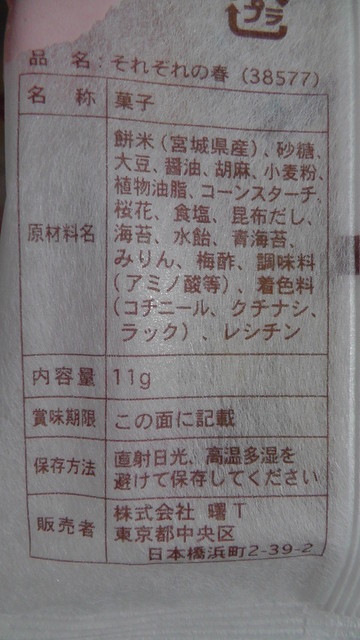 プラ
品 名：それぞれの春（38577）
名 称 菓子
原材料名 餅米（宮城県産）、砂糖、
大豆、醤油、胡麻、小麦粉、
植物油脂、コーンスターチ、
桜花、食塩、昆布だし、
海苔、水飴、青海苔、
みりん、梅酢、調味料
（アミノ酸等）、着色料
（コチニール、クチナシ、
ラック）、レシチン
内容量 11g
賞味期限 この面に記載
保存方法 直射日光、高温多湿を
避けて保存してください
販売者 株式会社 曙 T
東京都中央区
日本橋浜町2-39-2